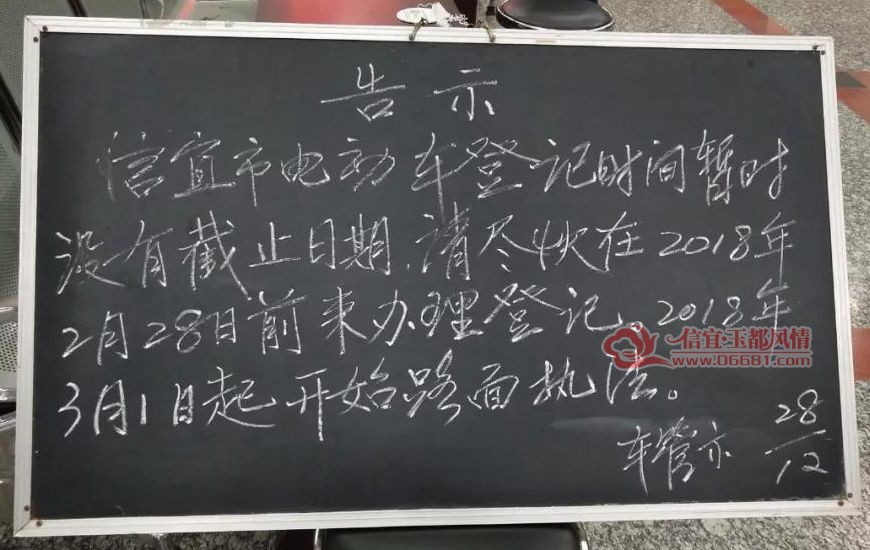 告示
信宜市电动车登记时间暂时
没有截止日期,请尽快在2018年
2月28日前来办理登记。2018年
3月1日起开始路面执法。
车管亦 28/12
信宜玉都风情
www.06681.com